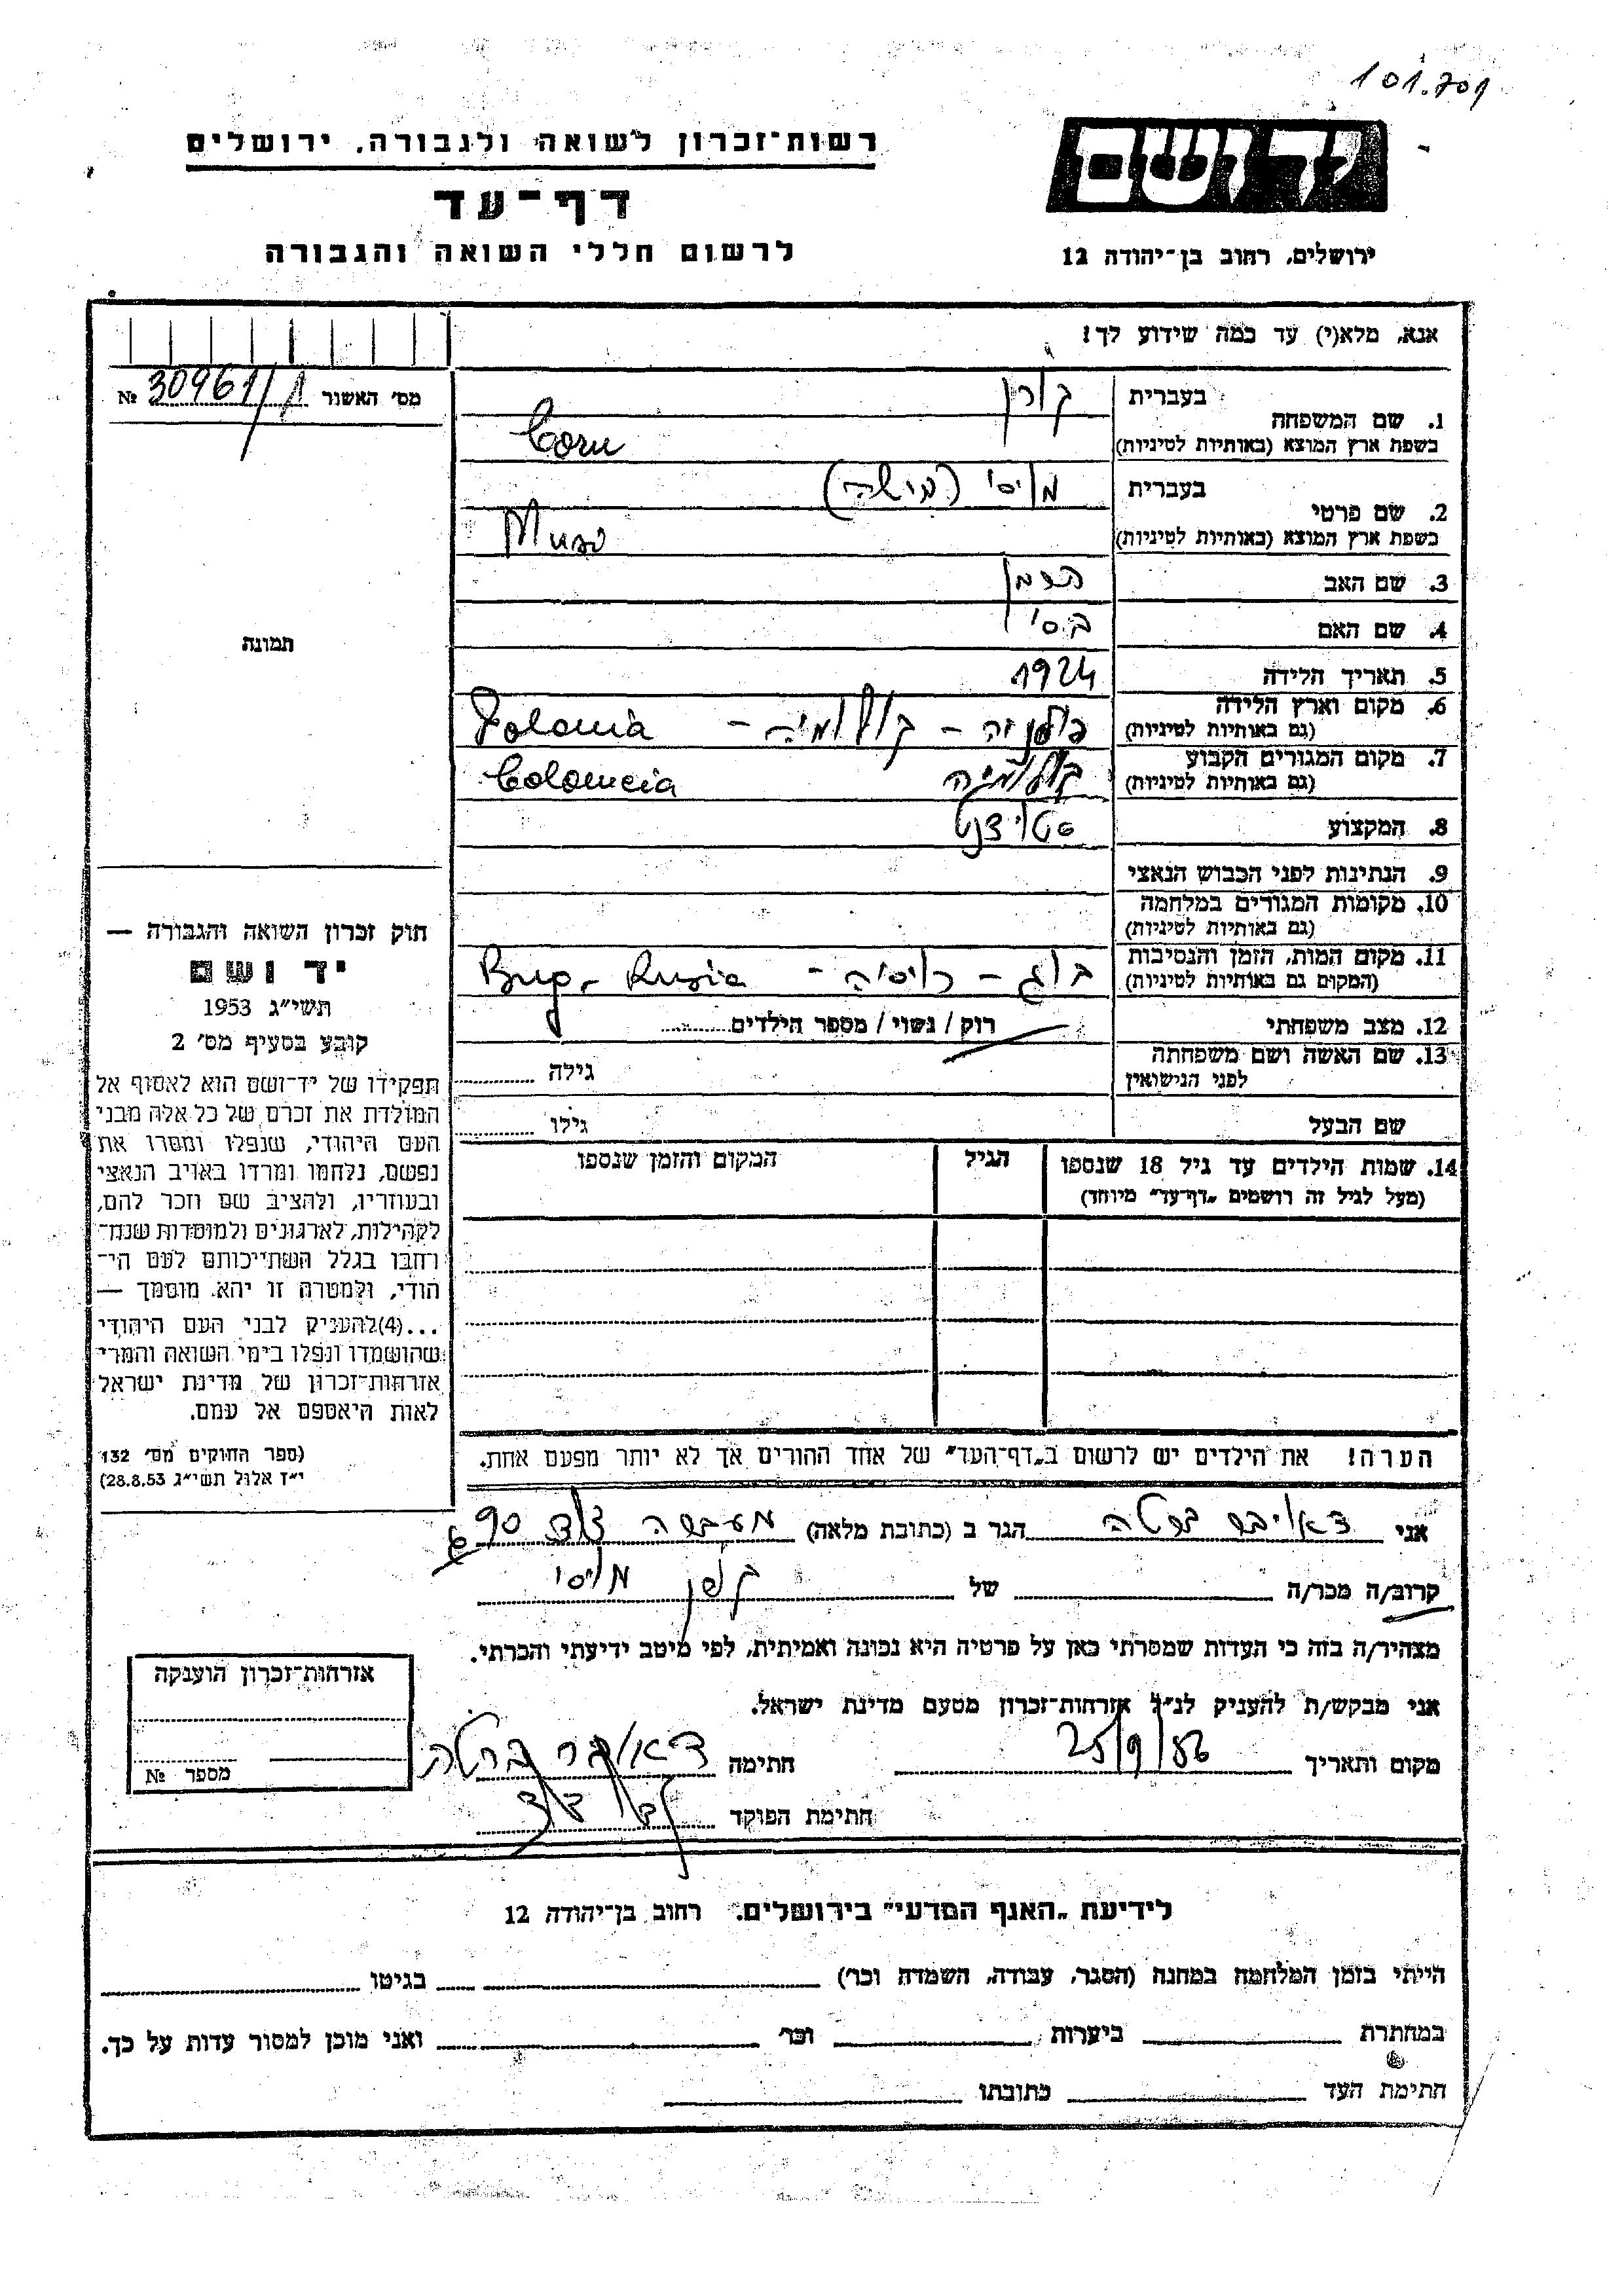 101.701
רשות־זכרון לשואה ולגבורה, ירושלים
יד ושם
דף־עד
לרשום חללי השואה והגבורה
ירושלים, רחוב בן־יהודה 12
אנא, מלא(י) עד כמה שידוע לך!
מס׳ האשור 30961/1 №
1. שם המשפחה
בעברית קורן
בשפת ארץ המוצא (באותיות לטיניות) Corn
2. שם פרטי
בעברית מוסי (מושה)
בשפת ארץ המוצא (באותיות לטיניות) Musi
3. שם האב הרמן
4. שם האם
5. תאריך הלידה 1924
6. מקום וארץ הלידה פולניה – קולומיה – Polonia
(גם באותיות לטיניות)
7. מקום המגורים הקבוע קולומיה Colomeia
(גם באותיות לטיניות)
8. המקצוע סטודנט
9. הנתינות לפני הכבוש הנאצי
10. מקומות המגורים במלחמה
(גם באותיות לטיניות)
11. מקום המות, הזמן והנסיבות בוג – רוסיה – Bug - Rusia
(המקום גם באותיות לטיניות)
12. מצב משפחתי רוק / נשוי / מספר הילדים
13. שם האשה ושם משפחתה
לפני הנישואין
גילה
שם הבעל
גילו
14. שמות הילדים עד גיל 18 שנספו
(מעל לגיל זה רושמים „דף־עד״ מיוחד)
הגיל
המקום והזמן שנספו
תמונה
חוק זכרון השואה והגבורה —
יד ושם
תשי״ג 1953
קובע בסעיף מס׳ 2
תפקידו של יד־ושם הוא לאסוף אל
המולדת את זכרם של כל אלה מבני
העם היהודי, שנפלו ומסרו את
נפשם, נלחמו ומרדו באויב הנאצי
ובעוזריו, ולהציב שם וזכר להם,
לקהילות, לארגונים ולמוסדות שנח־
רחבו בגלל השתייכותם לעם הי־
הודי, ולמטרה זו יהא מוסמך —
...(4) להעניק לבני העם היהודי
שהושמדו ונפלו בימי השואה והמרי
אזרחות־זכרון של מדינת ישראל
לאות היאספם אל עמם.
(ספר החוקים מס׳ 132
י״ז אלול תשי״ג 28.8.53)
הערה! את הילדים יש לרשום ב„דף־העד״ של אחד ההורים אך לא יותר מפעם אחת.
אני ברטה הגר ב (כתובת מלאה) 90
קרוב/ה מכר/ה של קורן מוסי
מצהיר/ה בזה כי העדות שמסרתי כאן על פרטיה היא נכונה ואמיתית, לפי מיטב ידיעתי והכרתי.
אני מבקש/ת להעניק לנ״ל אזרחות־זכרון מטעם מדינת ישראל.
מקום ותאריך 25/9/86 חתימה ברטה
חתימת הפוקד
אזרחות־זכרון הוענקה
מספר №
לידיעת „האגף המדעי״ בירושלים. רחוב בן־יהודה 12
הייתי בזמן המלחמה במחנה (הסגר, עבודה, השמדה וכר׳) בגיטו
במחתרת ביערות וכר׳ ואני מוכן למסור עדות על כך.
חתימת העד כתובתו